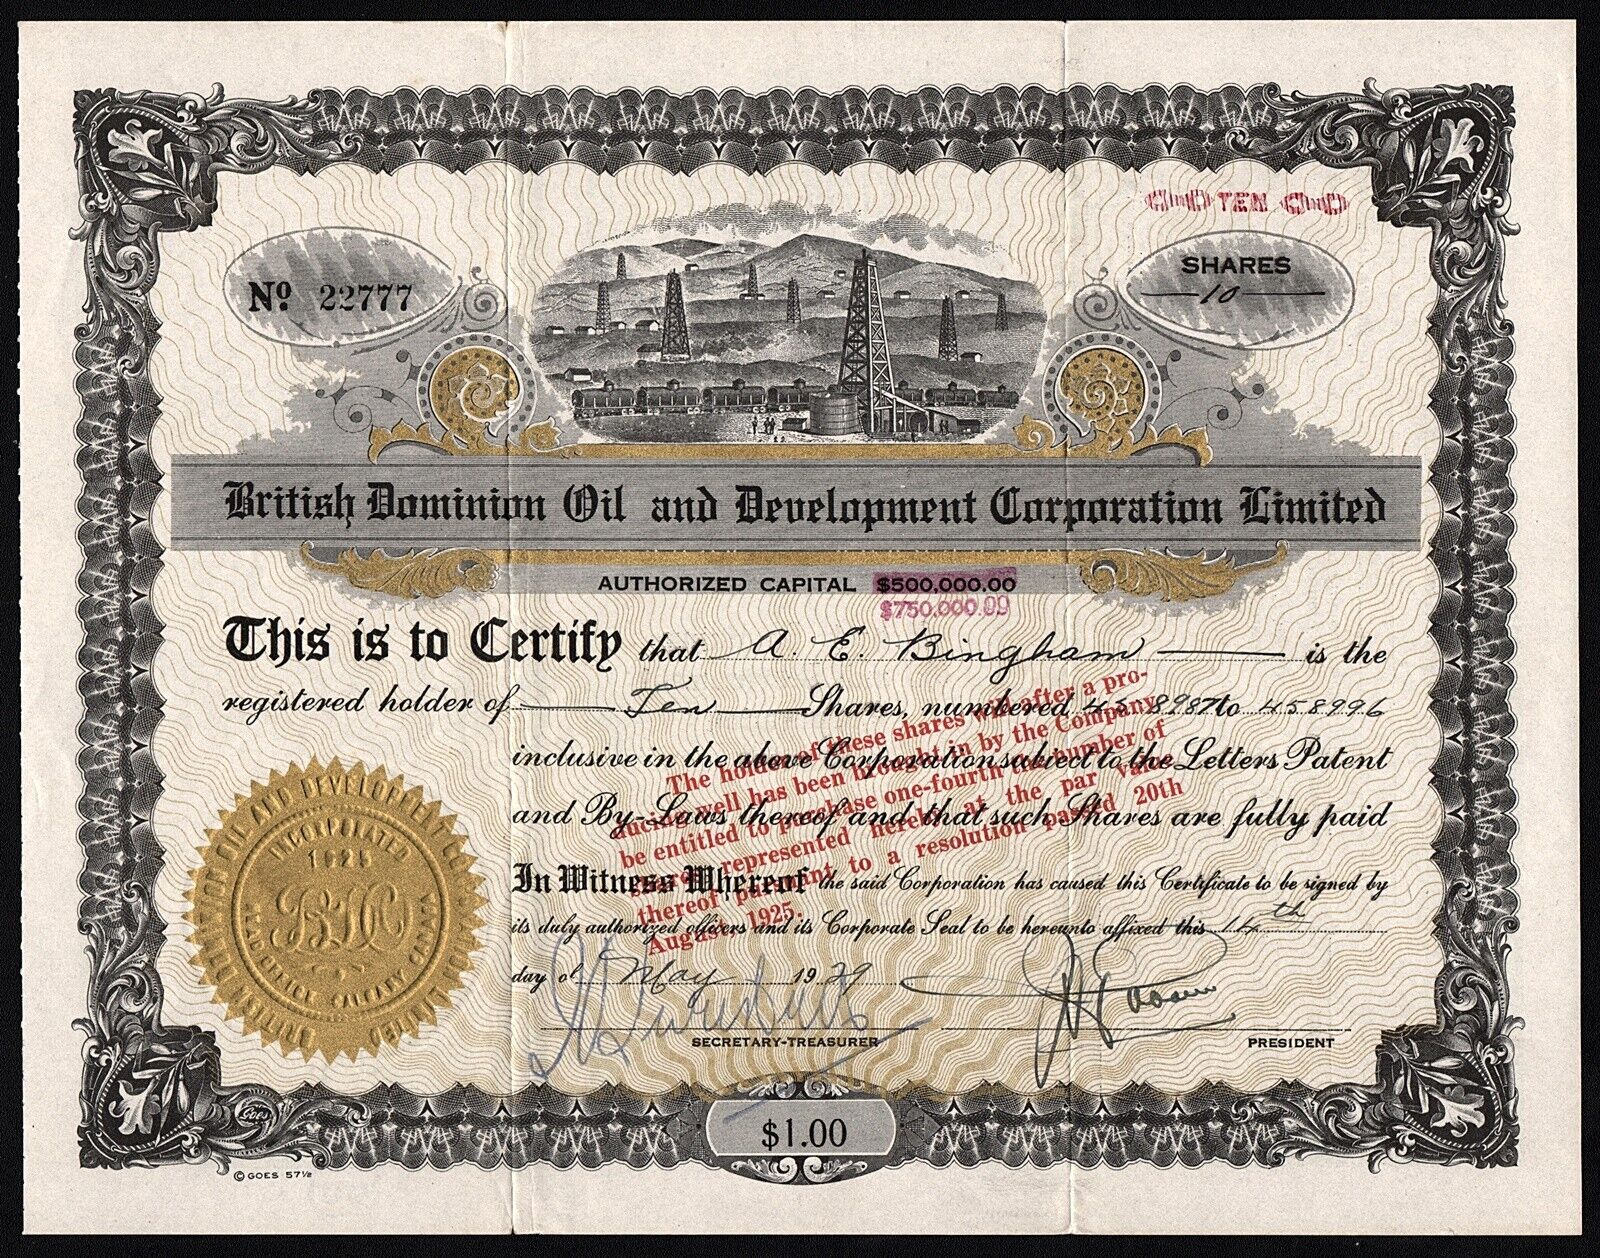 TEN
No. 22777
SHARES
10
British Dominion Oil and Development Corporation Limited
AUTHORIZED CAPITAL $500,000.00
$750,000.00
This is to Certify that A. E. Bingham is the
registered holder of Ten Shares, numbered 458987 to 458996
inclusive in the above Corporation subject to the Letters Patent
and By-Laws thereof and that such Shares are fully paid
In Witness Whereof the said Corporation has caused this Certificate to be signed by
its duly authorized officers and its Corporate Seal to be hereunto affixed this 14th
day of May 1929
The holder of these shares will after a pro-
ducing well has been brought in by the Company
be entitled to purchase one-fourth the number of
shares represented hereby at the par value
thereof pursuant to a resolution passed 20th
August, 1925.
BRITISH DOMINION OIL AND DEVELOPMENT CORPORATION LIMITED
INCORPORATED
1925
SECRETARY-TREASURER
PRESIDENT
$1.00
Goes
© GOES 57½